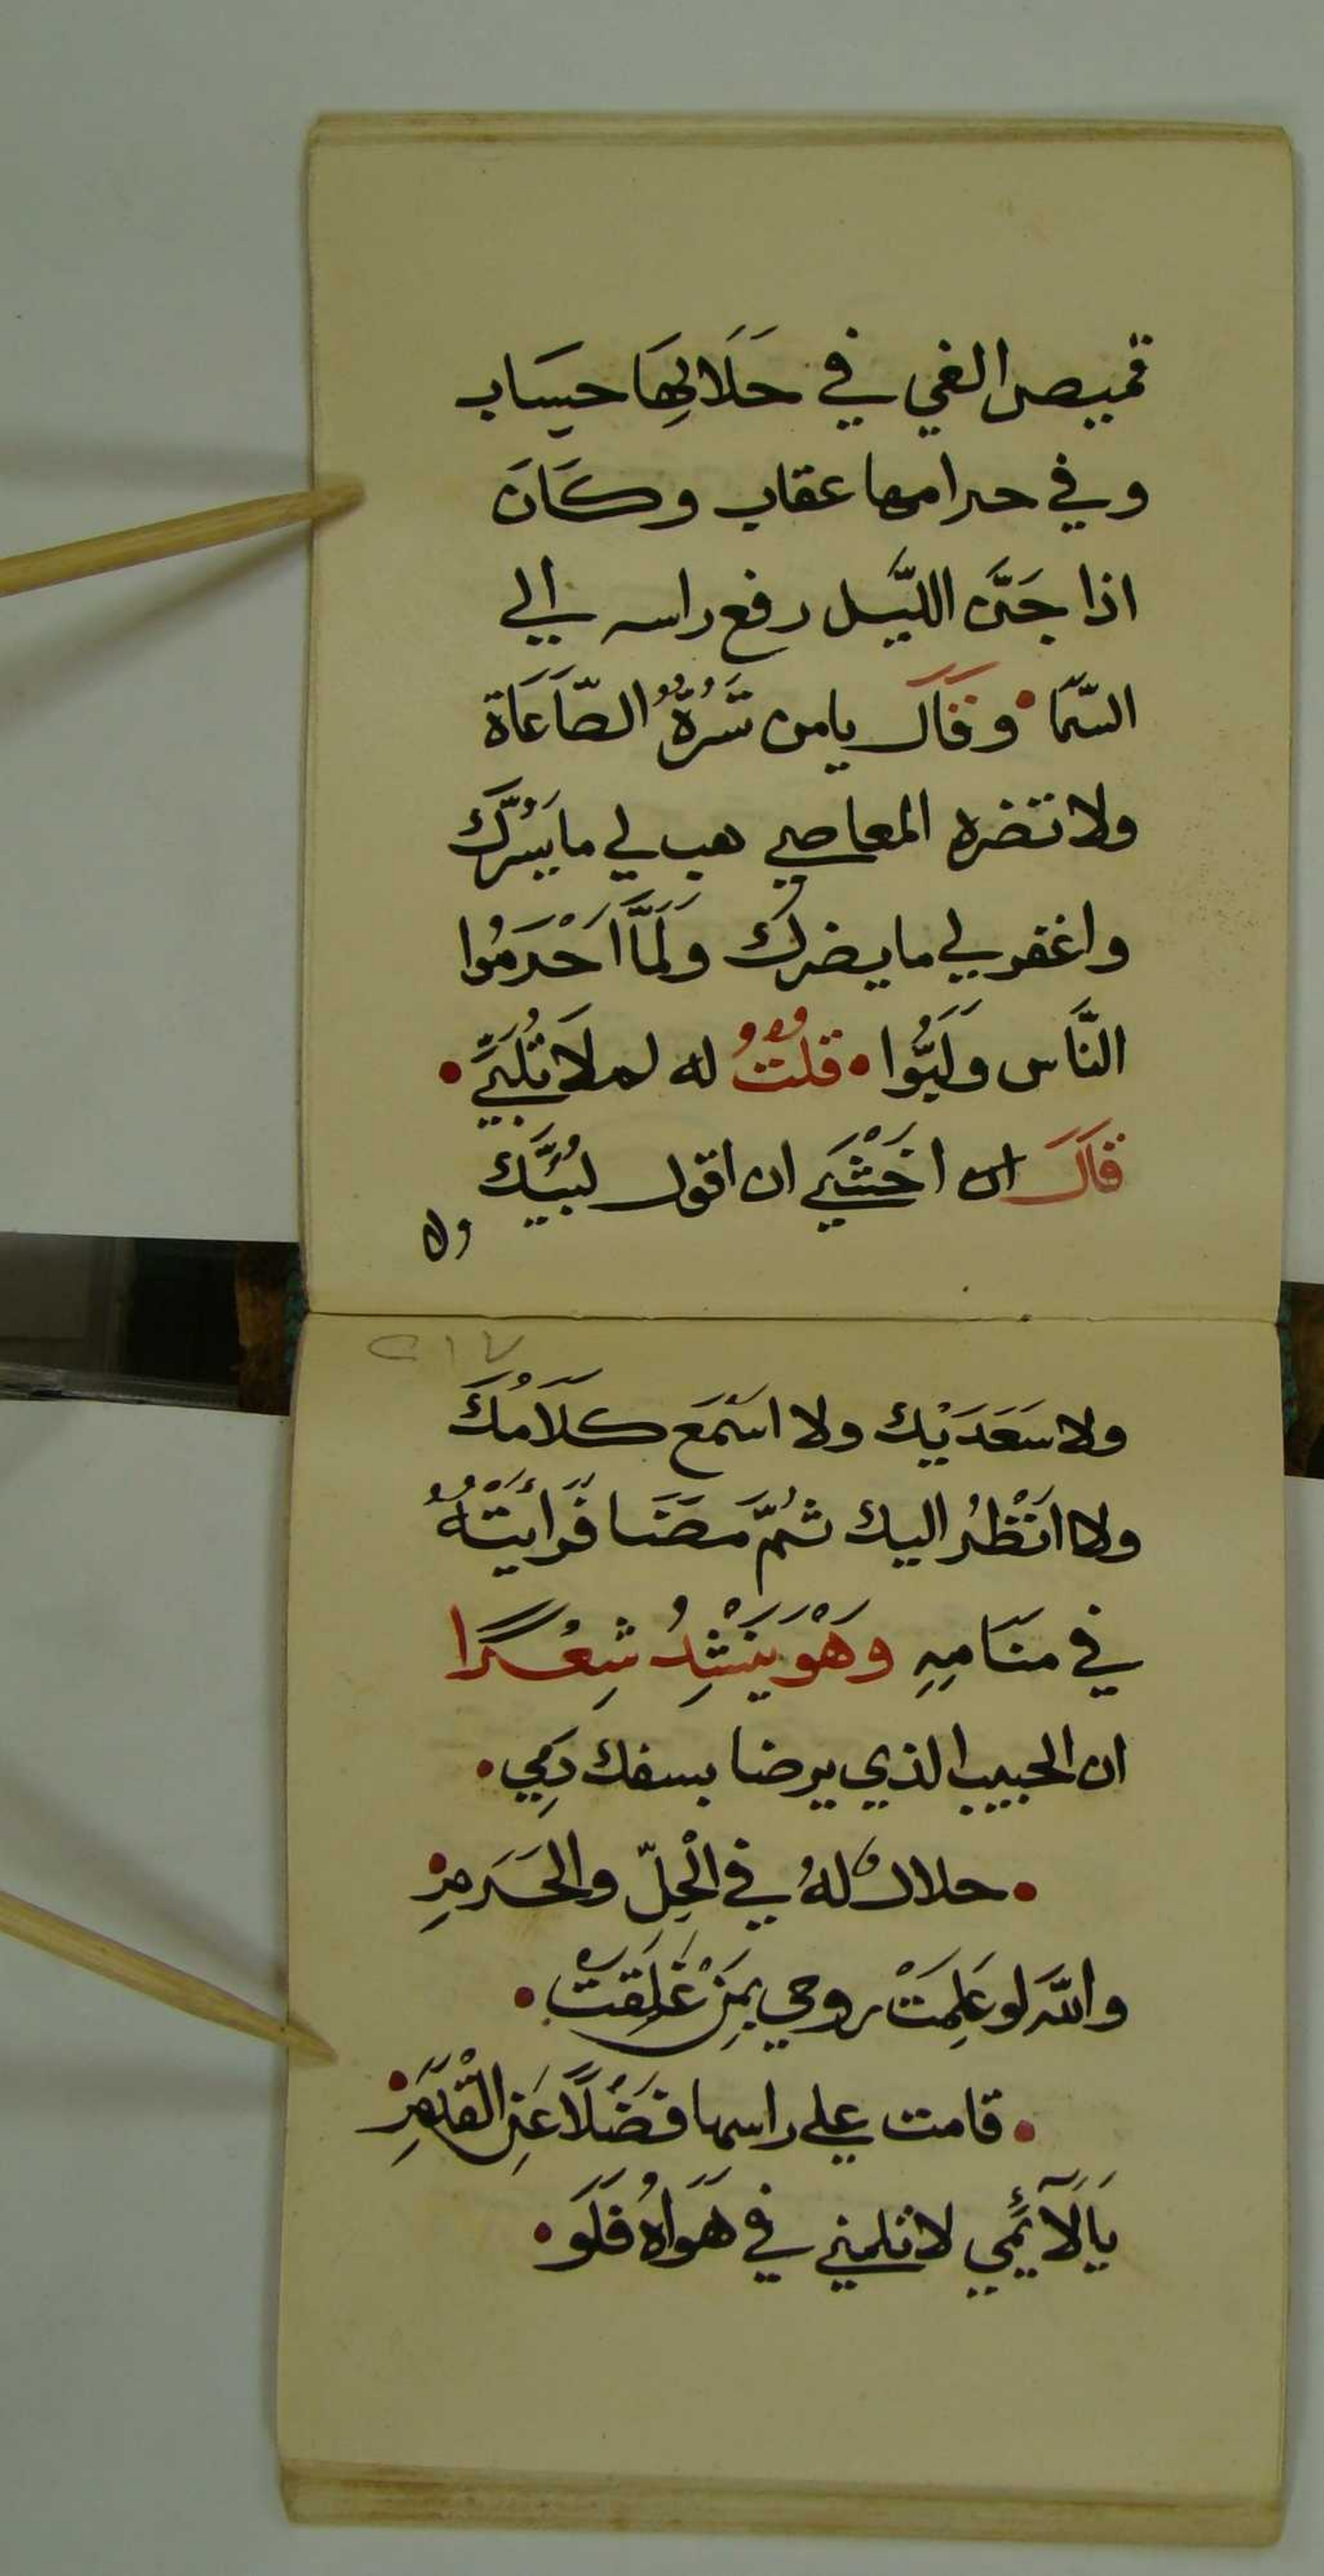 قميص الغي في حَلَالِهَا حِسَاب
وفي حرامها عقاب وكَانَ
اذا جَنَّ اللّيل رفع راسه الي
السّمَا • وقَالَ يامن تَسُرُّهُ الطّاعَاة
ولا تضره المعاصي هب لي ما يَسُرُّكَ
واغفر لي ما يضرك وَلَمَّا اَحْرَمُوا
النَّاس وَلَبُّوا • قلتُ له لم لا تُلَبِّي •
قَالَ ان اخَشْيَ ان اقول لبَّيْك
ولا
٢١٧
ولا سَعَدَيْك ولا اسْمَع كَلَامُكَ
ولا انْظُر اليك ثُمَّ مَضَا فَرَأيْتُهُ
في مَنَامِهِ وَهْوَ يَنْشِدُ شِعْرًا
ان الحبيب الذي يرضا بسفك دَمِي •
• حلالٌ لهُ في الْحِلّ والحَرَمِ •
والله لو عَلِمَتْ روحي بِمَنْ عَلِقَتْ •
• قامت علي راسها فَضْلًا عَنِ الْقَدَمِ •
يَالَآئِمِي لا تلمني في هَوَاهُ فَلَو •